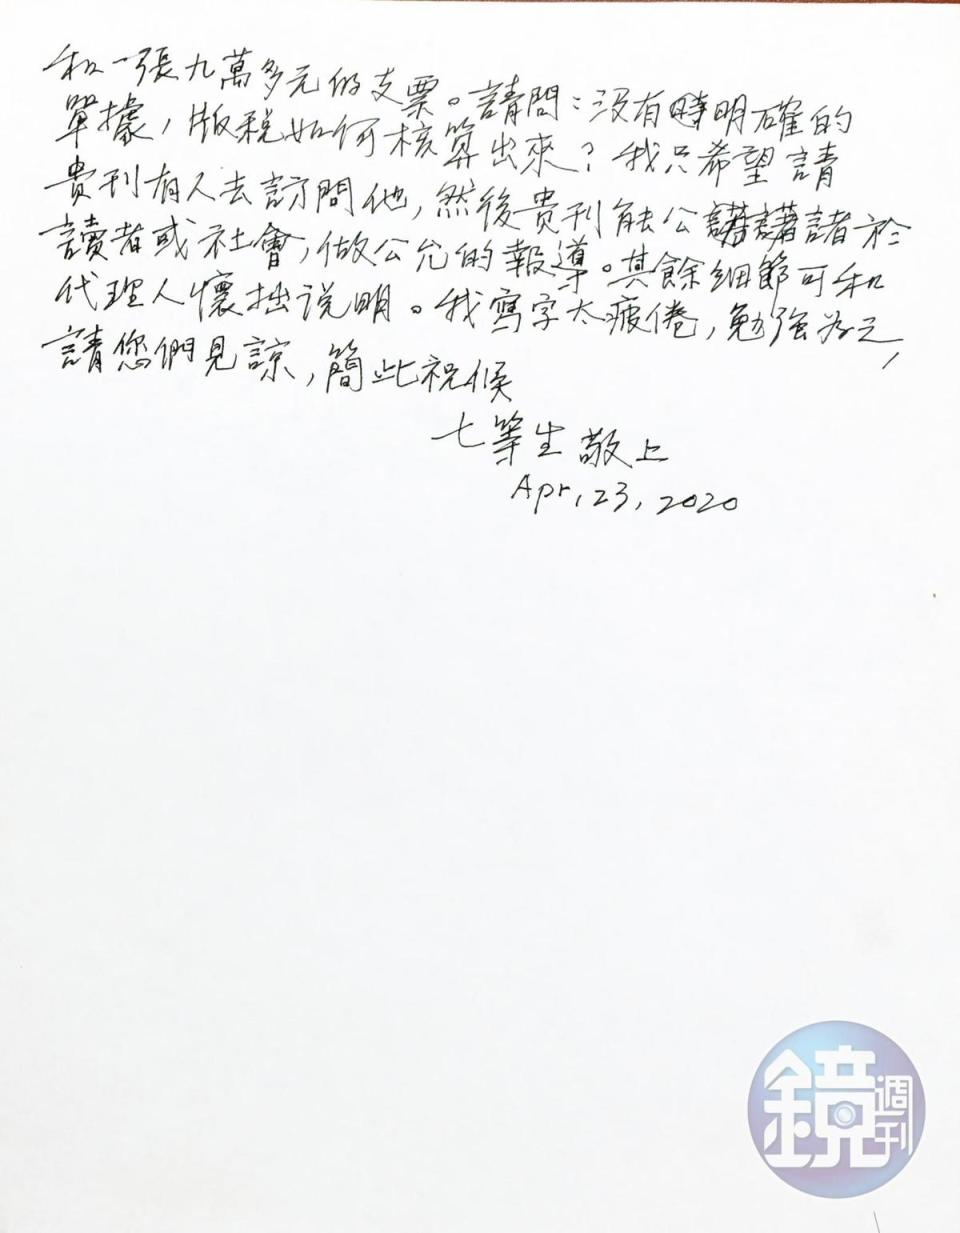 和一張九萬多元的支票。請問：沒有時明確的
單據，版稅如何核算出來？我只希望請
貴刊有人去訪問他，然後貴刊能公諸於
讀者或社會，做公允的報導。其餘細節可和
代理人懷拙说明。我寫字太疲倦，勉強為之，
請您們見諒，簡此祝候
七等生敬上
Apr, 23, 2020
鏡週刊